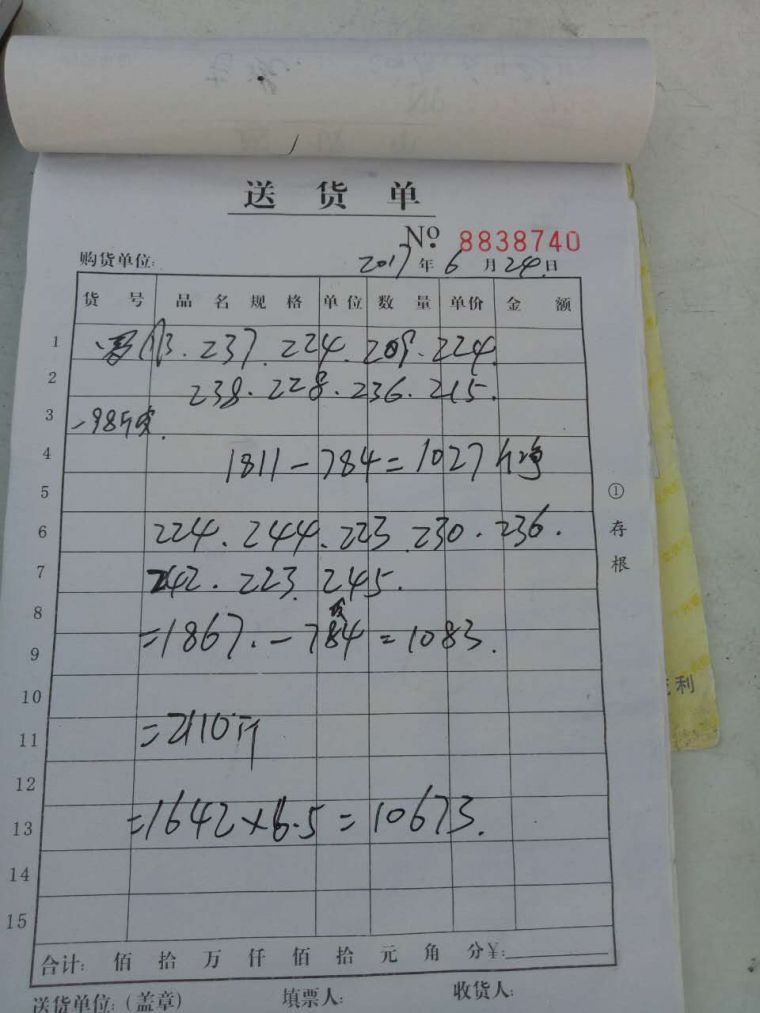 送货单
No. 8838740
购货单位: 2017年6月24日
货号 品名规格 单位 数量 单价 金额
1 237. 224. 209. 224.
2 238. 228. 236. 215.
3 98斤
4 1811-784=1027斤净
5
6 224. 244. 223. 230. 236.
7 242. 223. 245.
8
9 =1867.-784=1083.
10
11 =2110斤
12
13 =1642×6.5=10673.
14
15
① 存根
合计: 佰 拾 万 仟 佰 拾 元 角 分¥:
送货单位:(盖章) 填票人: 收货人:
利